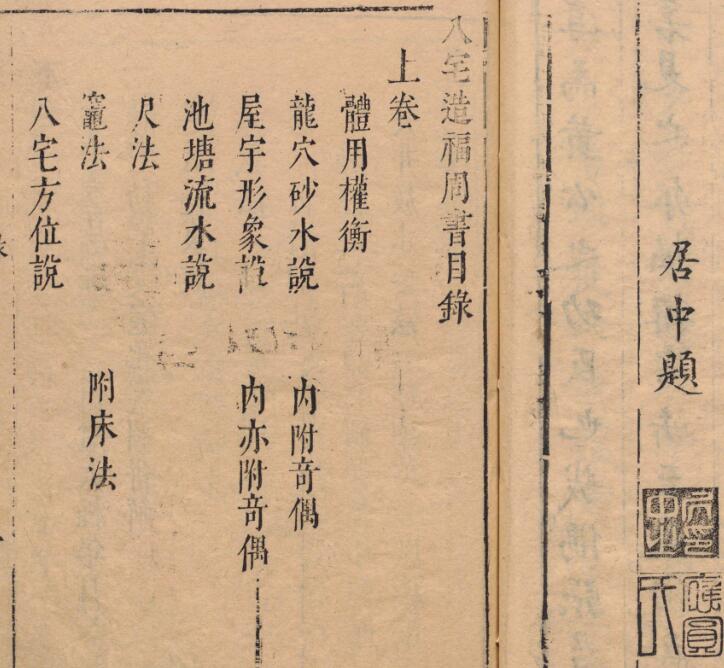 居中題
八宅造福周書目錄
上卷
體用權衡
龍穴砂水說 內附奇偶
屋宇形象說 內亦附奇偶
池塘流水說
尺法
竈法 附床法
八宅方位說